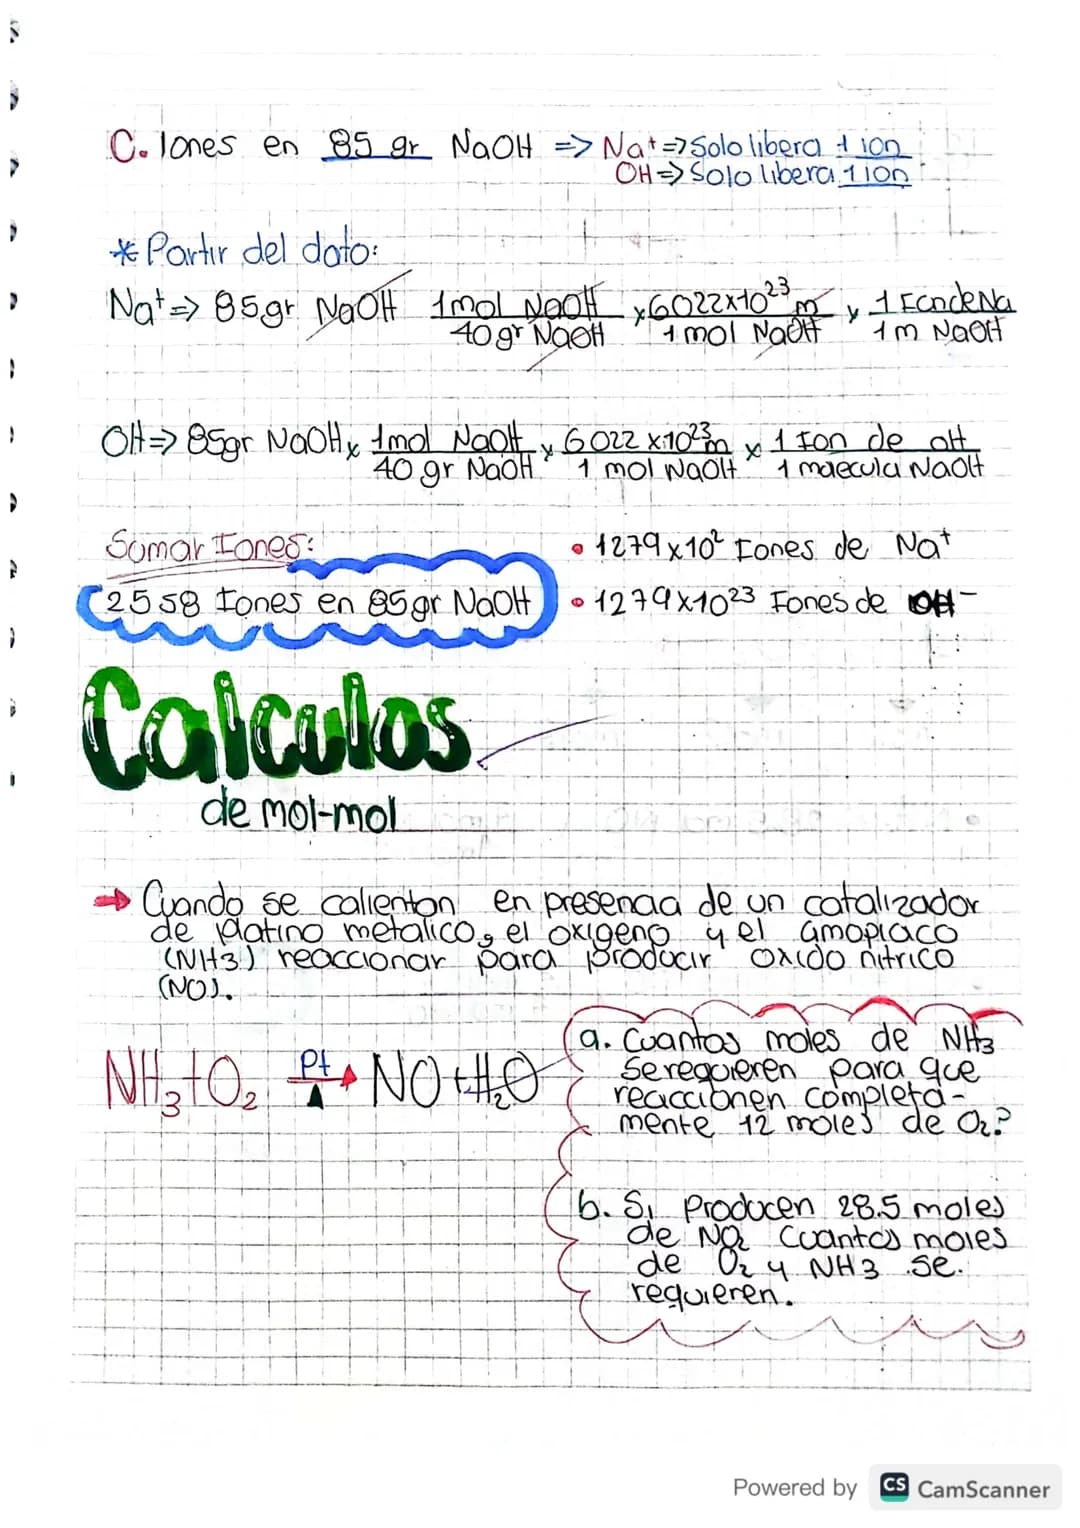 C. Iones en 85 gr NaOH => Na+ => Solo libera 1 ion
OH => Solo libera 1 ion
* Partir del dato:
Na+ => 85gr NaOH 1mol NaOH / 40 gr NaOH x 6022x10^23 m / 1 mol NaOH x 1 Ion de Na / 1 m NaOH
OH => 85gr NaOH x 1mol NaOH / 40 gr NaOH x 6022 x10^23 m / 1 mol NaOH x 1 Ion de OH / 1 molecula NaOH
Sumar Iones:
• 1279x10^2 Iones de Na+
2558 Iones en 85gr NaOH
• 1279x10^23 Iones de OH-
Calculos
de mol-mol
→ Cuando se calientan en presencia de un catalizador
de platino metalico, el oxigeno y el amopiaco
(NH3) reaccionar para producir oxido nitrico
(NO).
NH3+O2 Pt → NO+H2O
a. Cuantos moles de NH3
Se requieren para que
reaccionen completa-
mente 12 moles de O2?
b. Si Producen 28.5 moles
de NO2 Cuantos moles
de O2 y NH3 se.
requieren.
Powered by CS CamScanner